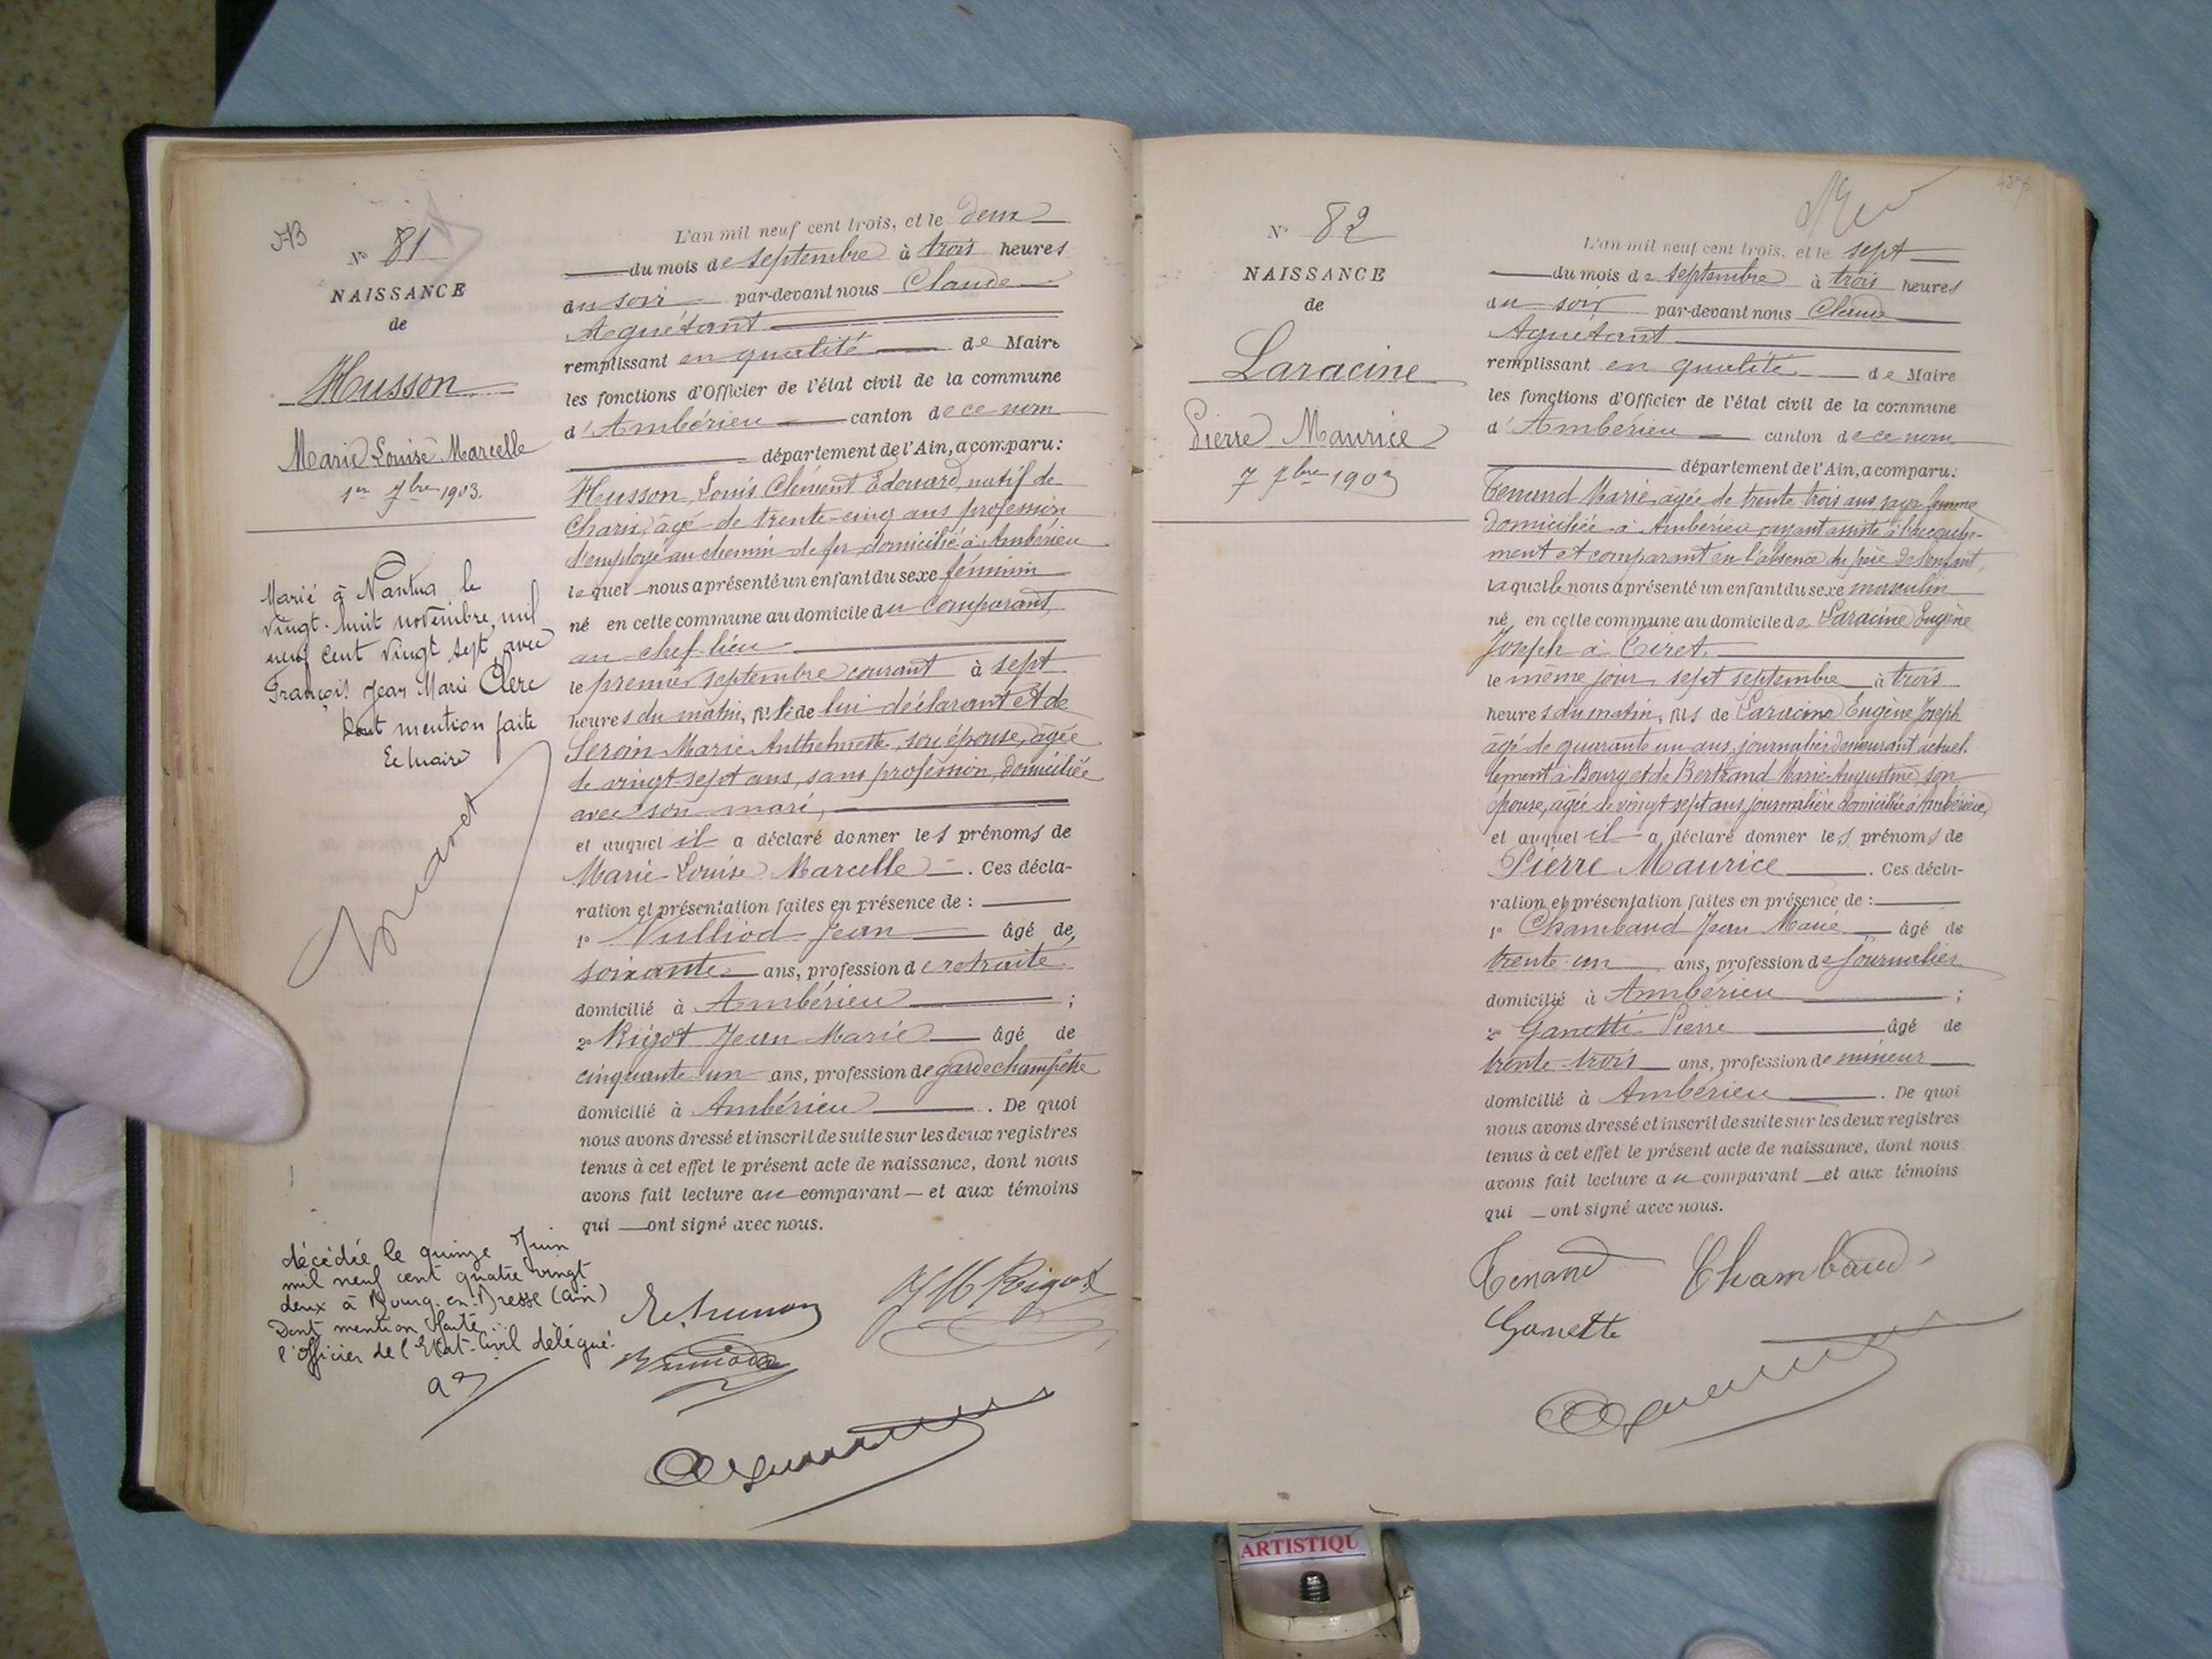 N° 81
NAISSANCE
de
Husson
Marie Louise Marcelle
1er 7bre 1903.
Marié à Nantua le
vingt-huit novembre mil
neuf cent vingt sept avec
François Jean Marie Clerc
Dont mention faite
Le Maire
décédée le quinze Juin
mil neuf cent quatre vingt
deux à Bourg-en-Bresse (Ain)
Dont mention faite
l'Officier de l'Etat-Civil délégué.
L'an mil neuf cent trois, et le deux
du mois de septembre à trois heures
du soir par-devant nous Claude
Aguétant
remplissant en qualité de Maire
les fonctions d'Officier de l'état civil de la commune
d'Ambérieu canton de ce nom
département de l'Ain, a comparu:
Husson, Louis Clément Edouard, natif de
Charix, âgé de trente-cinq ans profession
d'employé au chemin de fer domicilié à Ambérieu
lequel nous a présenté un enfant du sexe féminin
né en cette commune au domicile du comparant,
au chef-lieu
le premier septembre courant à sept
heures du matin, fille de lui déclarant et de
Marie Anthelmette, son épouse, âgée
de vingt-sept ans, sans profession, domiciliée
avec son mari,
et auquel il a déclaré donner les prénoms de
Marie Louise Marcelle. Ces décla-
ration et présentation faites en présence de :
1° Vulliod Jean âgé de
soixante ans, profession de retraité
domicilié à Ambérieu ;
2° Rigot Jean Marie âgé de
cinquante-un ans, profession de garde champêtre
domicilié à Ambérieu. De quoi
nous avons dressé et inscrit de suite sur les deux registres
tenus à cet effet le présent acte de naissance, dont nous
avons fait lecture au comparant et aux témoins
qui ont signé avec nous.
JM Rigot
N° 82
NAISSANCE
de
Laracine
Pierre Maurice
7 7bre 1903
L'an mil neuf cent trois, et le sept
du mois de septembre à trois heures
du soir par-devant nous Claude
Aguétant
remplissant en qualité de Maire
les fonctions d'Officier de l'état civil de la commune
d'Ambérieu canton de ce nom
département de l'Ain, a comparu:
Tenand Marie âgée de trente trois ans sage femme
domiciliée à Ambérieu ayant assisté à l'accouche-
ment et comparant en l'absence du père de l'enfant,
laquelle nous a présenté un enfant du sexe masculin
né en cette commune au domicile de Laracine Eugène
Joseph à Tiret.
le même jour sept septembre à trois
heures du matin, fils de Laracine Eugène Joseph
âgé de quarante un ans, journalier demeurant actuel-
lement à Bourg et de Bertrand Marie Augustine, son
épouse, âgée de vingt sept ans, journalière domiciliée à Ambérieu,
et auquel il a déclaré donner les prénoms de
Pierre Maurice. Ces décla-
ration et présentation faites en présence de :
1° Chambaud Jean Marie âgé de
trente-un ans, profession de journalier
domicilié à Ambérieu ;
2° Ganetti Pierre âgé de
trente-trois ans, profession de mineur
domicilié à Ambérieu. De quoi
nous avons dressé et inscrit de suite sur les deux registres
tenus à cet effet le présent acte de naissance, dont nous
avons fait lecture au comparant et aux témoins
qui ont signé avec nous.
Tenand Chambaud
Ganette
ARTISTIQU